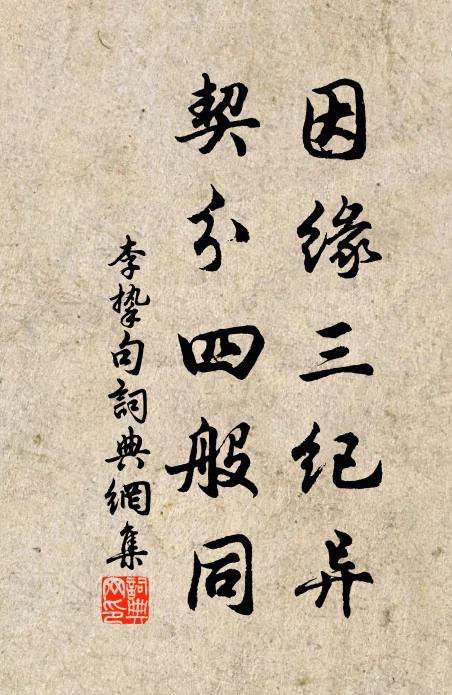 因缘三纪异
契分四般同
李挚句詞典網集
詞典网印